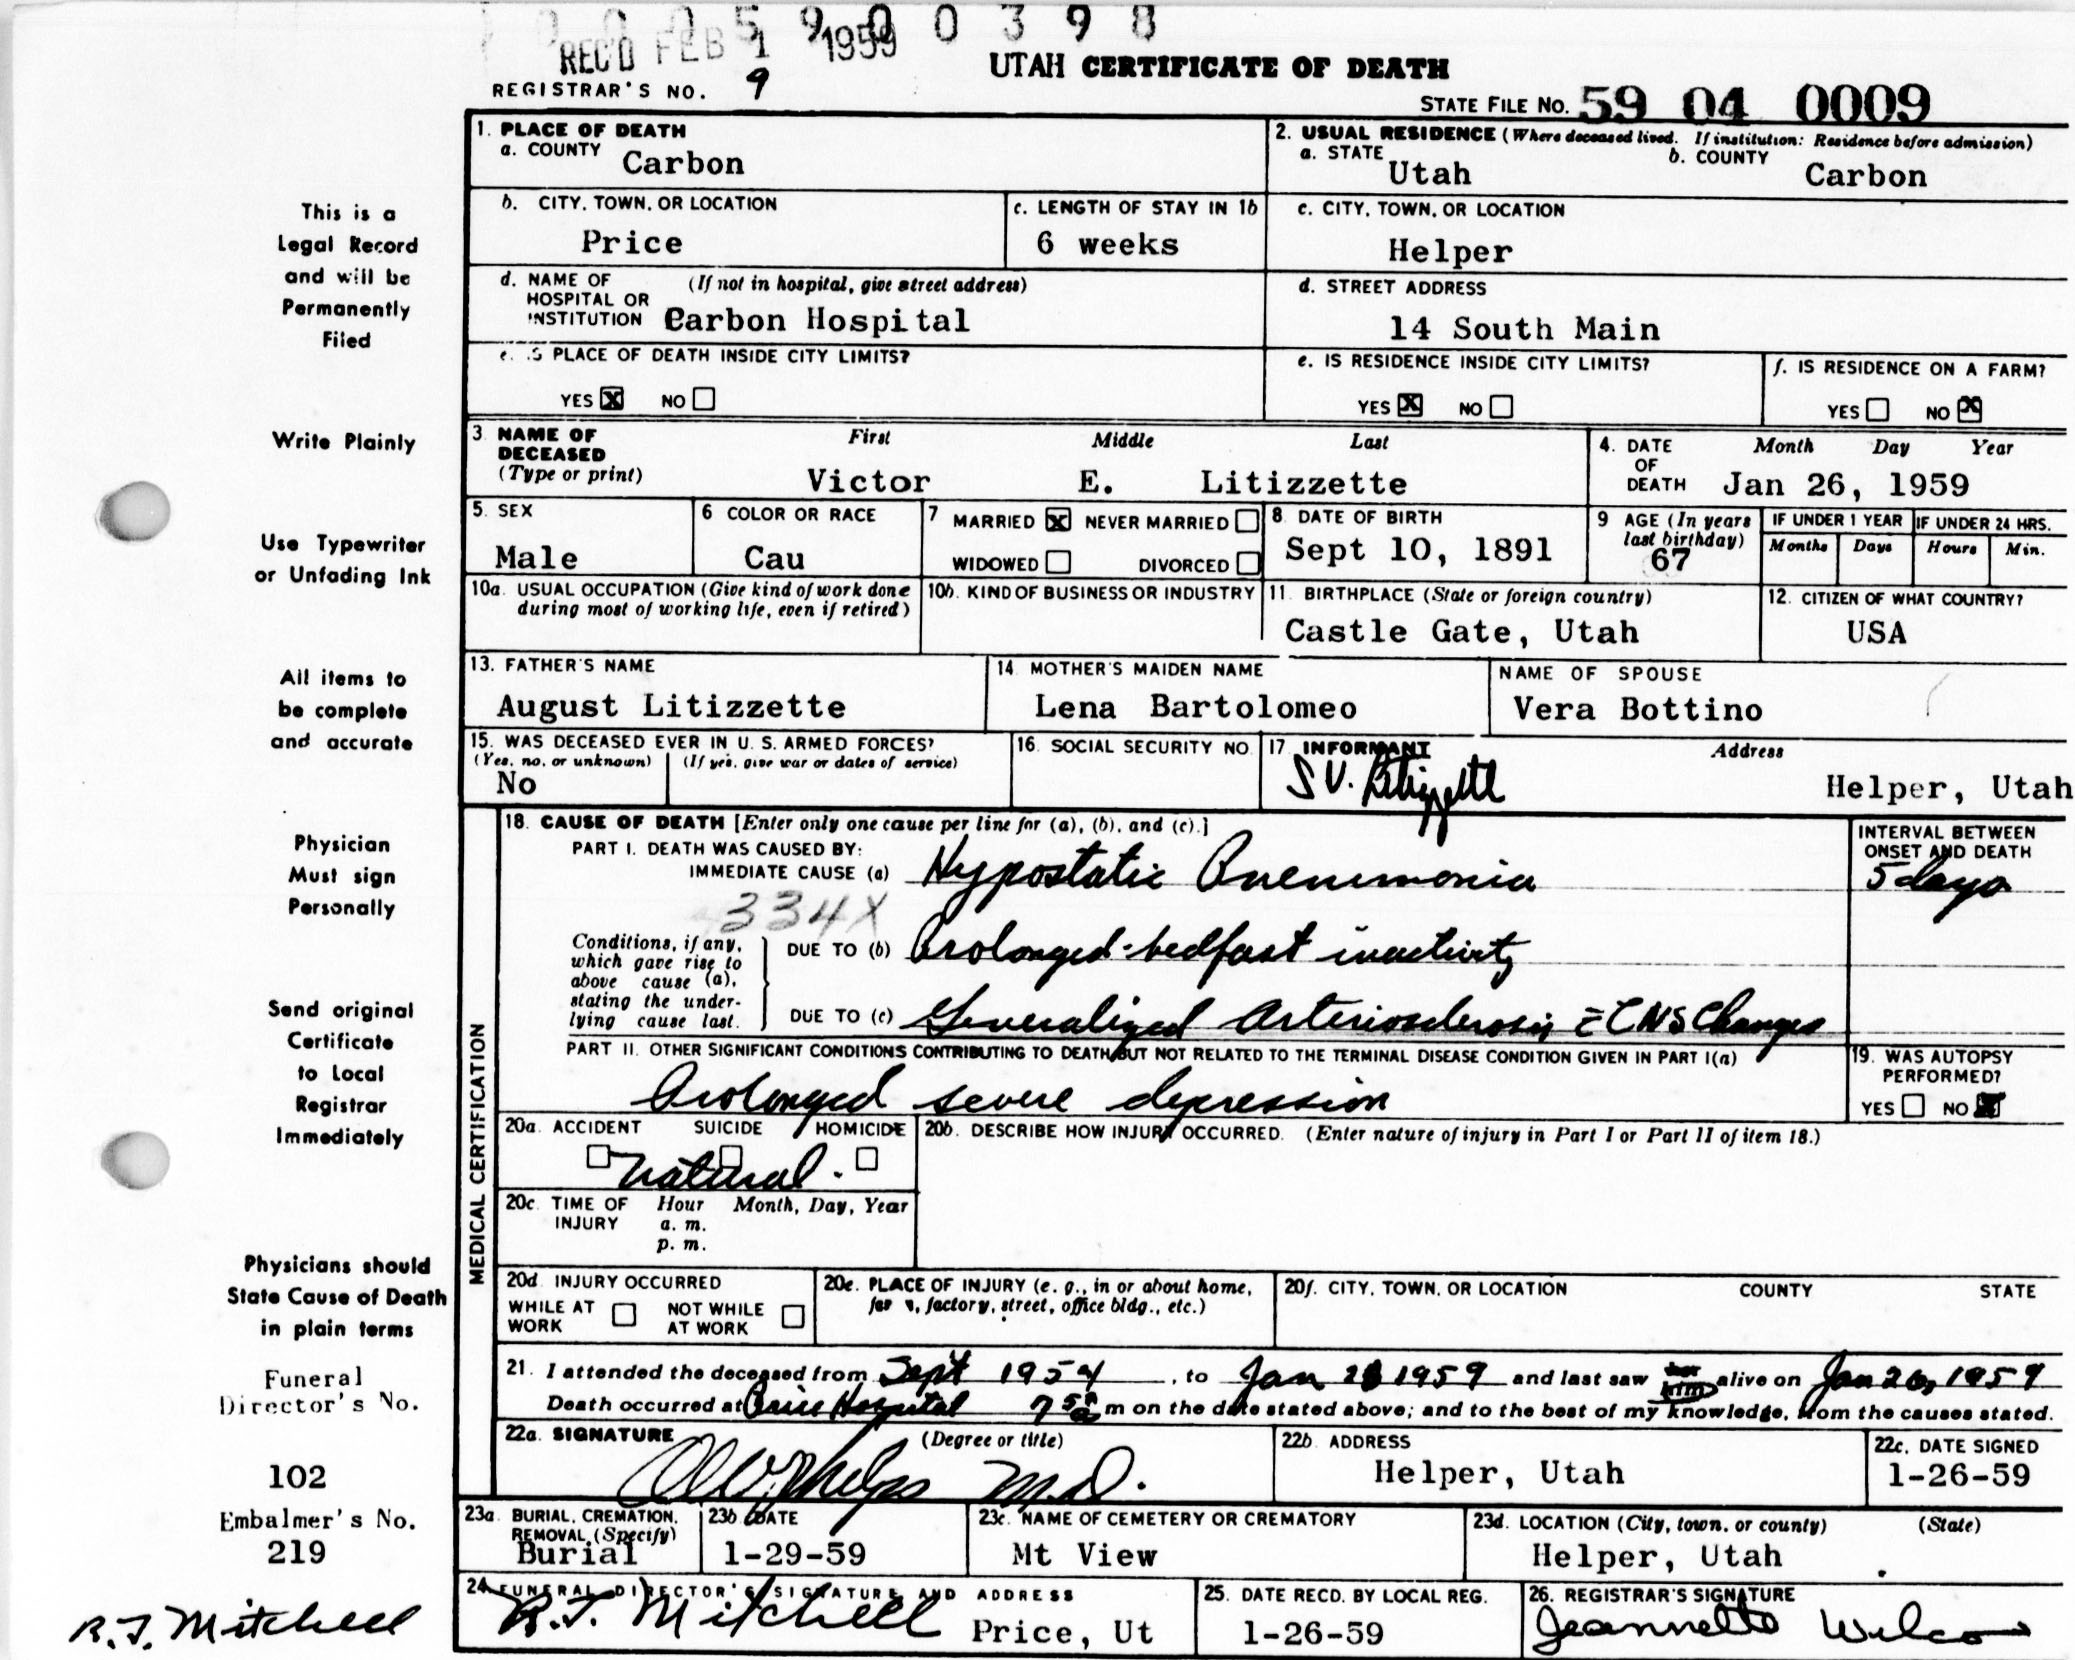 0 0 0 5 9 0 0 3 9 8
REC'D FEB 1 1959
UTAH CERTIFICATE OF DEATH
REGISTRAR'S NO. 9
STATE FILE NO. 59 04 0009
1. PLACE OF DEATH
a. COUNTY Carbon
2. USUAL RESIDENCE (Where deceased lived. If institution: Residence before admission)
a. STATE Utah b. COUNTY Carbon
b. CITY, TOWN, OR LOCATION Price
c. LENGTH OF STAY IN 1b 6 weeks
c. CITY, TOWN, OR LOCATION Helper
d. NAME OF HOSPITAL OR INSTITUTION (If not in hospital, give street address) Carbon Hospital
d. STREET ADDRESS 14 South Main
e. IS PLACE OF DEATH INSIDE CITY LIMITS?
YES X NO
e. IS RESIDENCE INSIDE CITY LIMITS?
YES X NO
f. IS RESIDENCE ON A FARM?
YES NO X
3. NAME OF DECEASED (Type or print) First Middle Last
Victor E. Litizzette
4. DATE OF DEATH Month Day Year
Jan 26, 1959
5. SEX Male
6 COLOR OR RACE Cau
7 MARRIED X NEVER MARRIED
WIDOWED DIVORCED
8. DATE OF BIRTH Sept 10, 1891
9 AGE (In years last birthday) 67
IF UNDER 1 YEAR Months Days
IF UNDER 24 HRS. Hours Min.
10a. USUAL OCCUPATION (Give kind of work done during most of working life, even if retired)
10b. KIND OF BUSINESS OR INDUSTRY
11. BIRTHPLACE (State or foreign country) Castle Gate, Utah
12. CITIZEN OF WHAT COUNTRY? USA
13. FATHER'S NAME August Litizzette
14. MOTHER'S MAIDEN NAME Lena Bartolomeo
NAME OF SPOUSE Vera Bottino
15. WAS DECEASED EVER IN U. S. ARMED FORCES?
(Yes, no, or unknown) (If yes, give war or dates of service)
No
16. SOCIAL SECURITY NO.
17. INFORMANT Address
S V. Litizzette Helper, Utah
MEDICAL CERTIFICATION
18. CAUSE OF DEATH [Enter only one cause per line for (a), (b), and (c).]
INTERVAL BETWEEN ONSET AND DEATH
PART I. DEATH WAS CAUSED BY:
IMMEDIATE CAUSE (a) Hypostatic Pneumonia 5 days
334X
Conditions, if any, which gave rise to above cause (a), stating the underlying cause last.
DUE TO (b) Prolonged-bedfast inactivity
DUE TO (c) Generalized Arteriosclerosis c̄ CNS Changes
PART II. OTHER SIGNIFICANT CONDITIONS CONTRIBUTING TO DEATH BUT NOT RELATED TO THE TERMINAL DISEASE CONDITION GIVEN IN PART I(a)
Prolonged severe depression
19. WAS AUTOPSY PERFORMED?
YES NO X
20a. ACCIDENT SUICIDE HOMICIDE
natural.
20b. DESCRIBE HOW INJURY OCCURRED. (Enter nature of injury in Part I or Part II of item 18.)
20c. TIME OF INJURY Hour Month, Day, Year
a. m.
p. m.
20d. INJURY OCCURRED
WHILE AT WORK NOT WHILE AT WORK
20e. PLACE OF INJURY (e. g., in or about home, farm, factory, street, office bldg., etc.)
20f. CITY, TOWN, OR LOCATION COUNTY STATE
21. I attended the deceased from Sept 1954, to Jan 1959 and last saw him alive on Jan 26, 1959
Death occurred at Price Hospital 7 50 a m on the date stated above; and to the best of my knowledge, from the causes stated.
22a. SIGNATURE (Degree or title)
Phelps M.D.
22b. ADDRESS Helper, Utah
22c. DATE SIGNED 1-26-59
23a. BURIAL, CREMATION, REMOVAL (Specify) Burial
23b. DATE 1-29-59
23c. NAME OF CEMETERY OR CREMATORY Mt View
23d. LOCATION (City, town, or county) (State) Helper, Utah
24. FUNERAL DIRECTOR'S SIGNATURE AND ADDRESS
R.J. Mitchell Price, Ut
25. DATE RECD. BY LOCAL REG. 1-26-59
26. REGISTRAR'S SIGNATURE Jeannette Wilcox
This is a
Legal Record
and will be
Permanently
Filed
Write Plainly
Use Typewriter
or Unfading Ink
All items to
be complete
and accurate
Physician
Must sign
Personally
Send original
Certificate
to Local
Registrar
Immediately
Physicians should
State Cause of Death
in plain terms
Funeral
Director's No.
102
Embalmer's No.
219
R.J. Mitchell